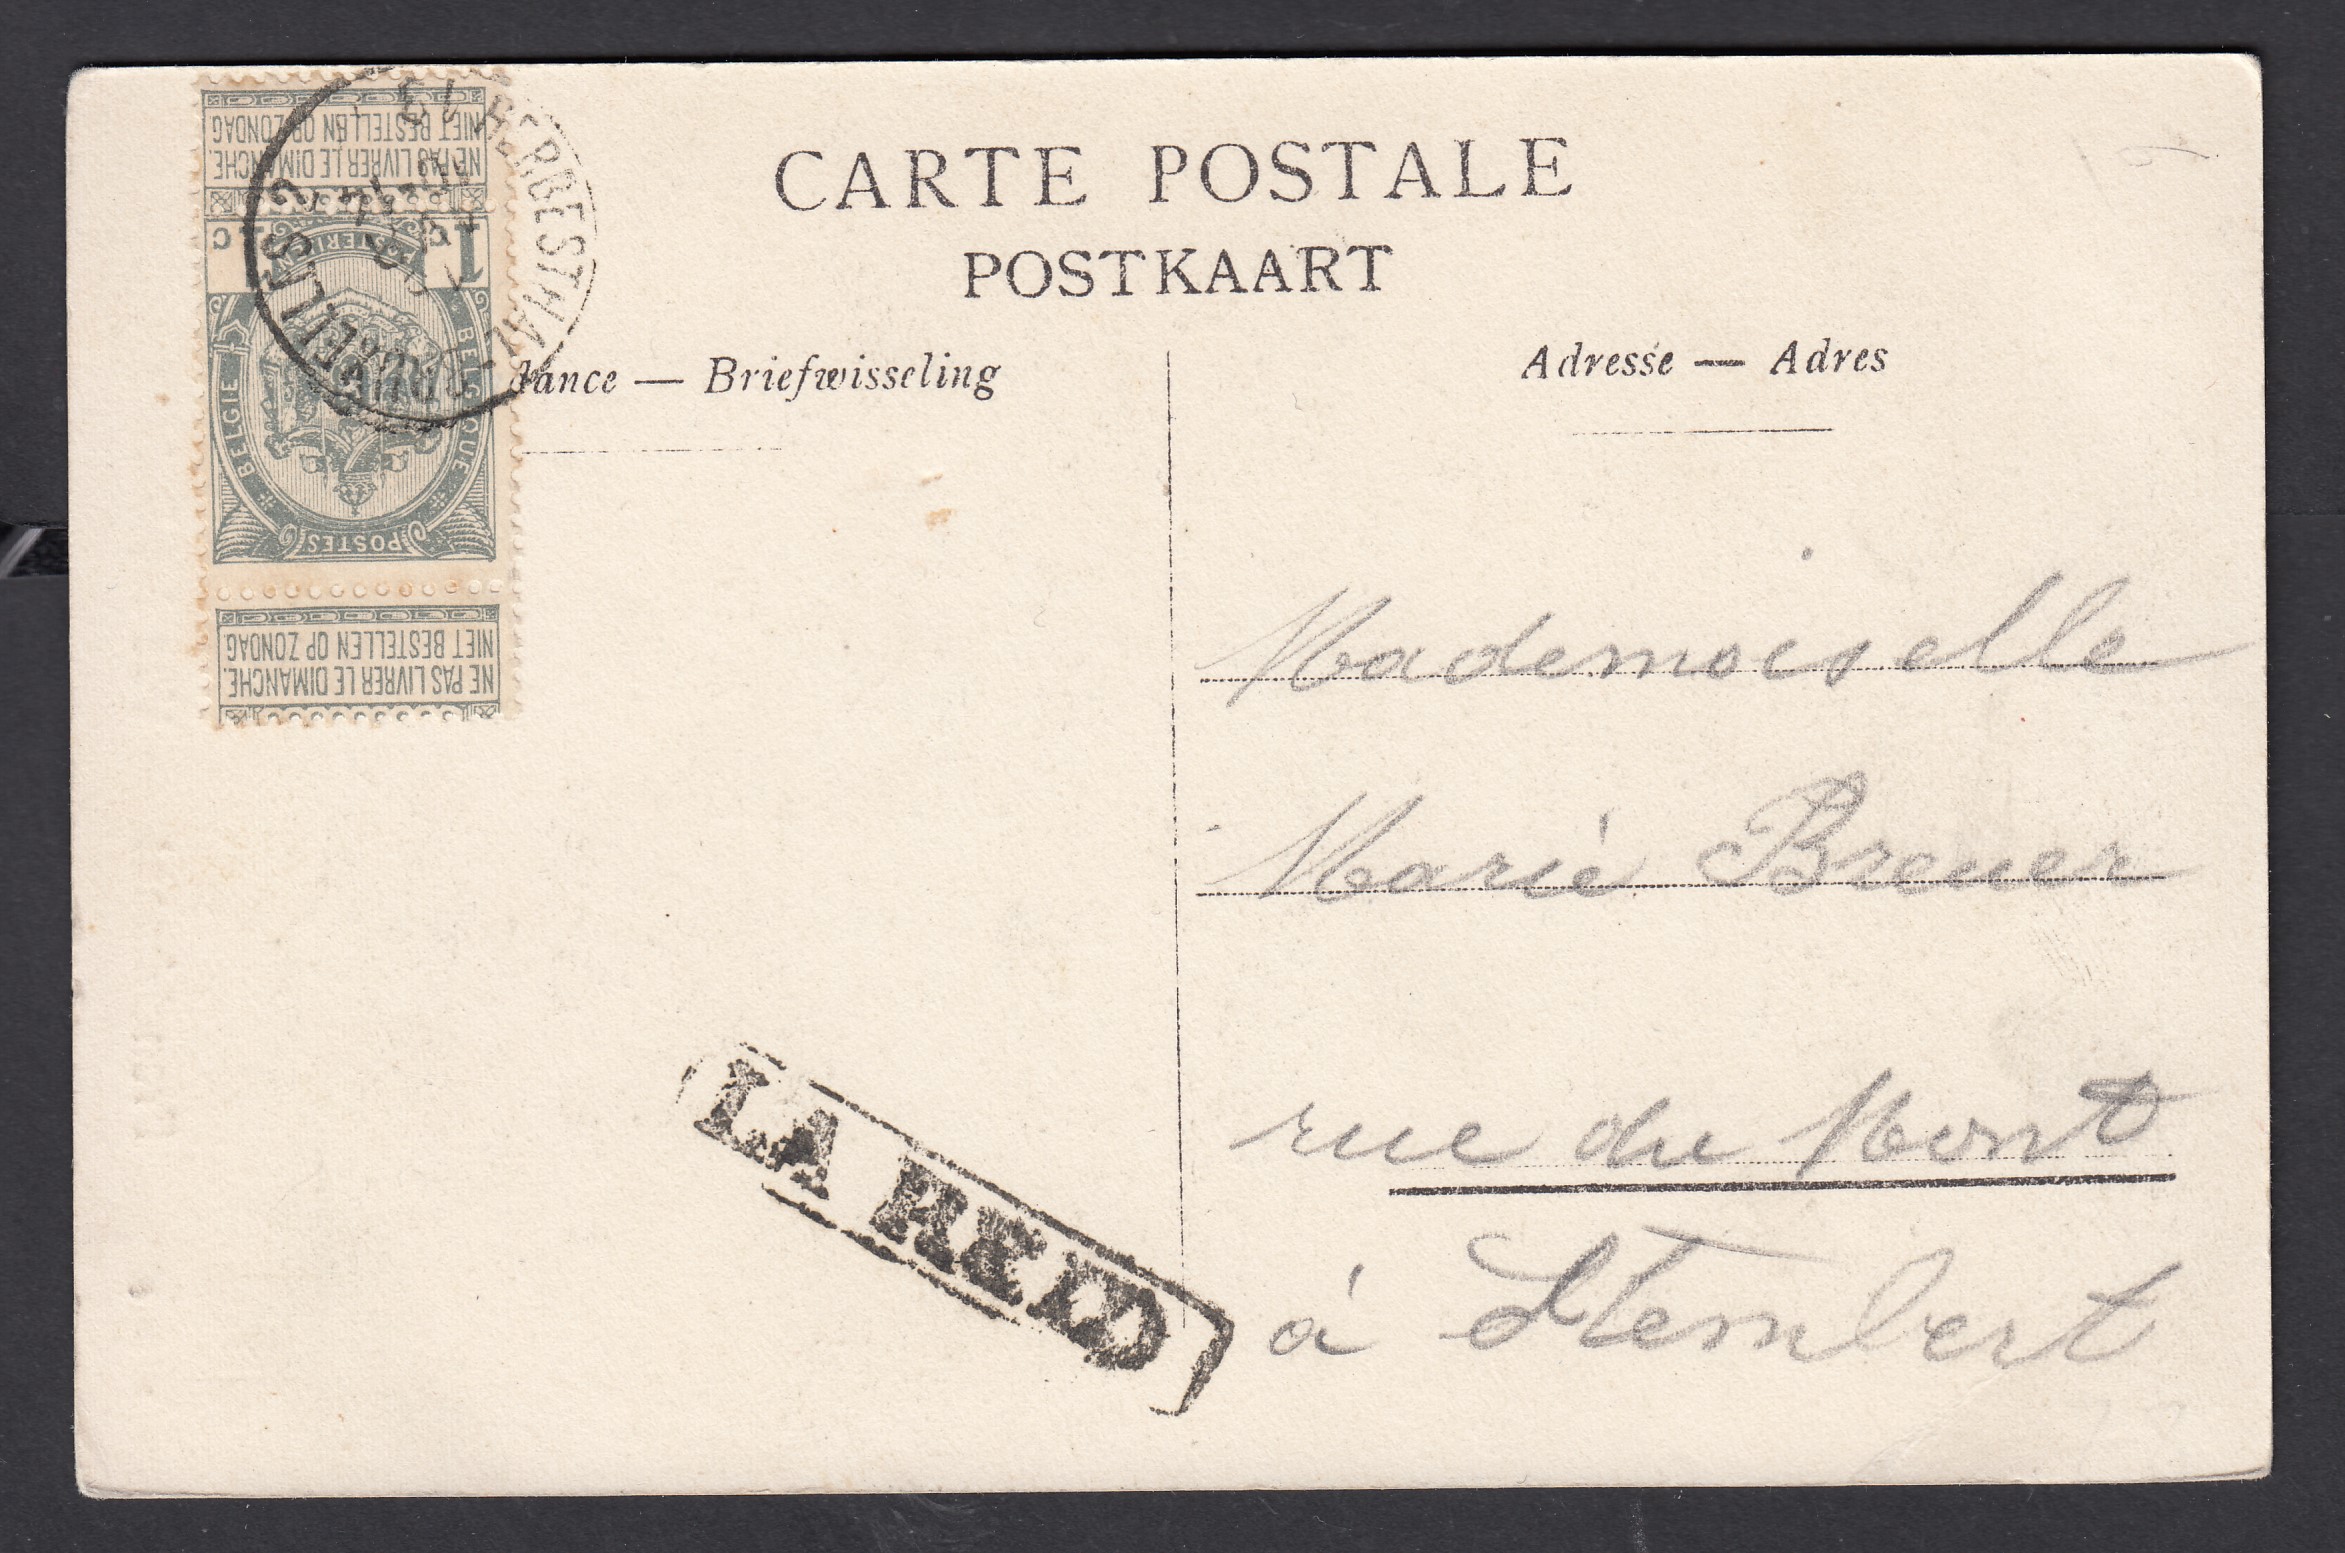 CARTE POSTALE
POSTKAART
dance — Briefwisseling
Adresse — Adres
NIET BESTELLEN OP ZONDAG
NE PAS LIVRER LE DIMANCHE.
1 c 1 c
POSTERIJEN
BELGIE BELGIQUE
POSTES
NIET BESTELLEN OP ZONDAG.
NE PAS LIVRER LE DIMANCHE.
HERBESTHAL - BRUXELLES 2
Mademoiselle
Marie Breuer
rue du Mont
à Stembert
LA REID